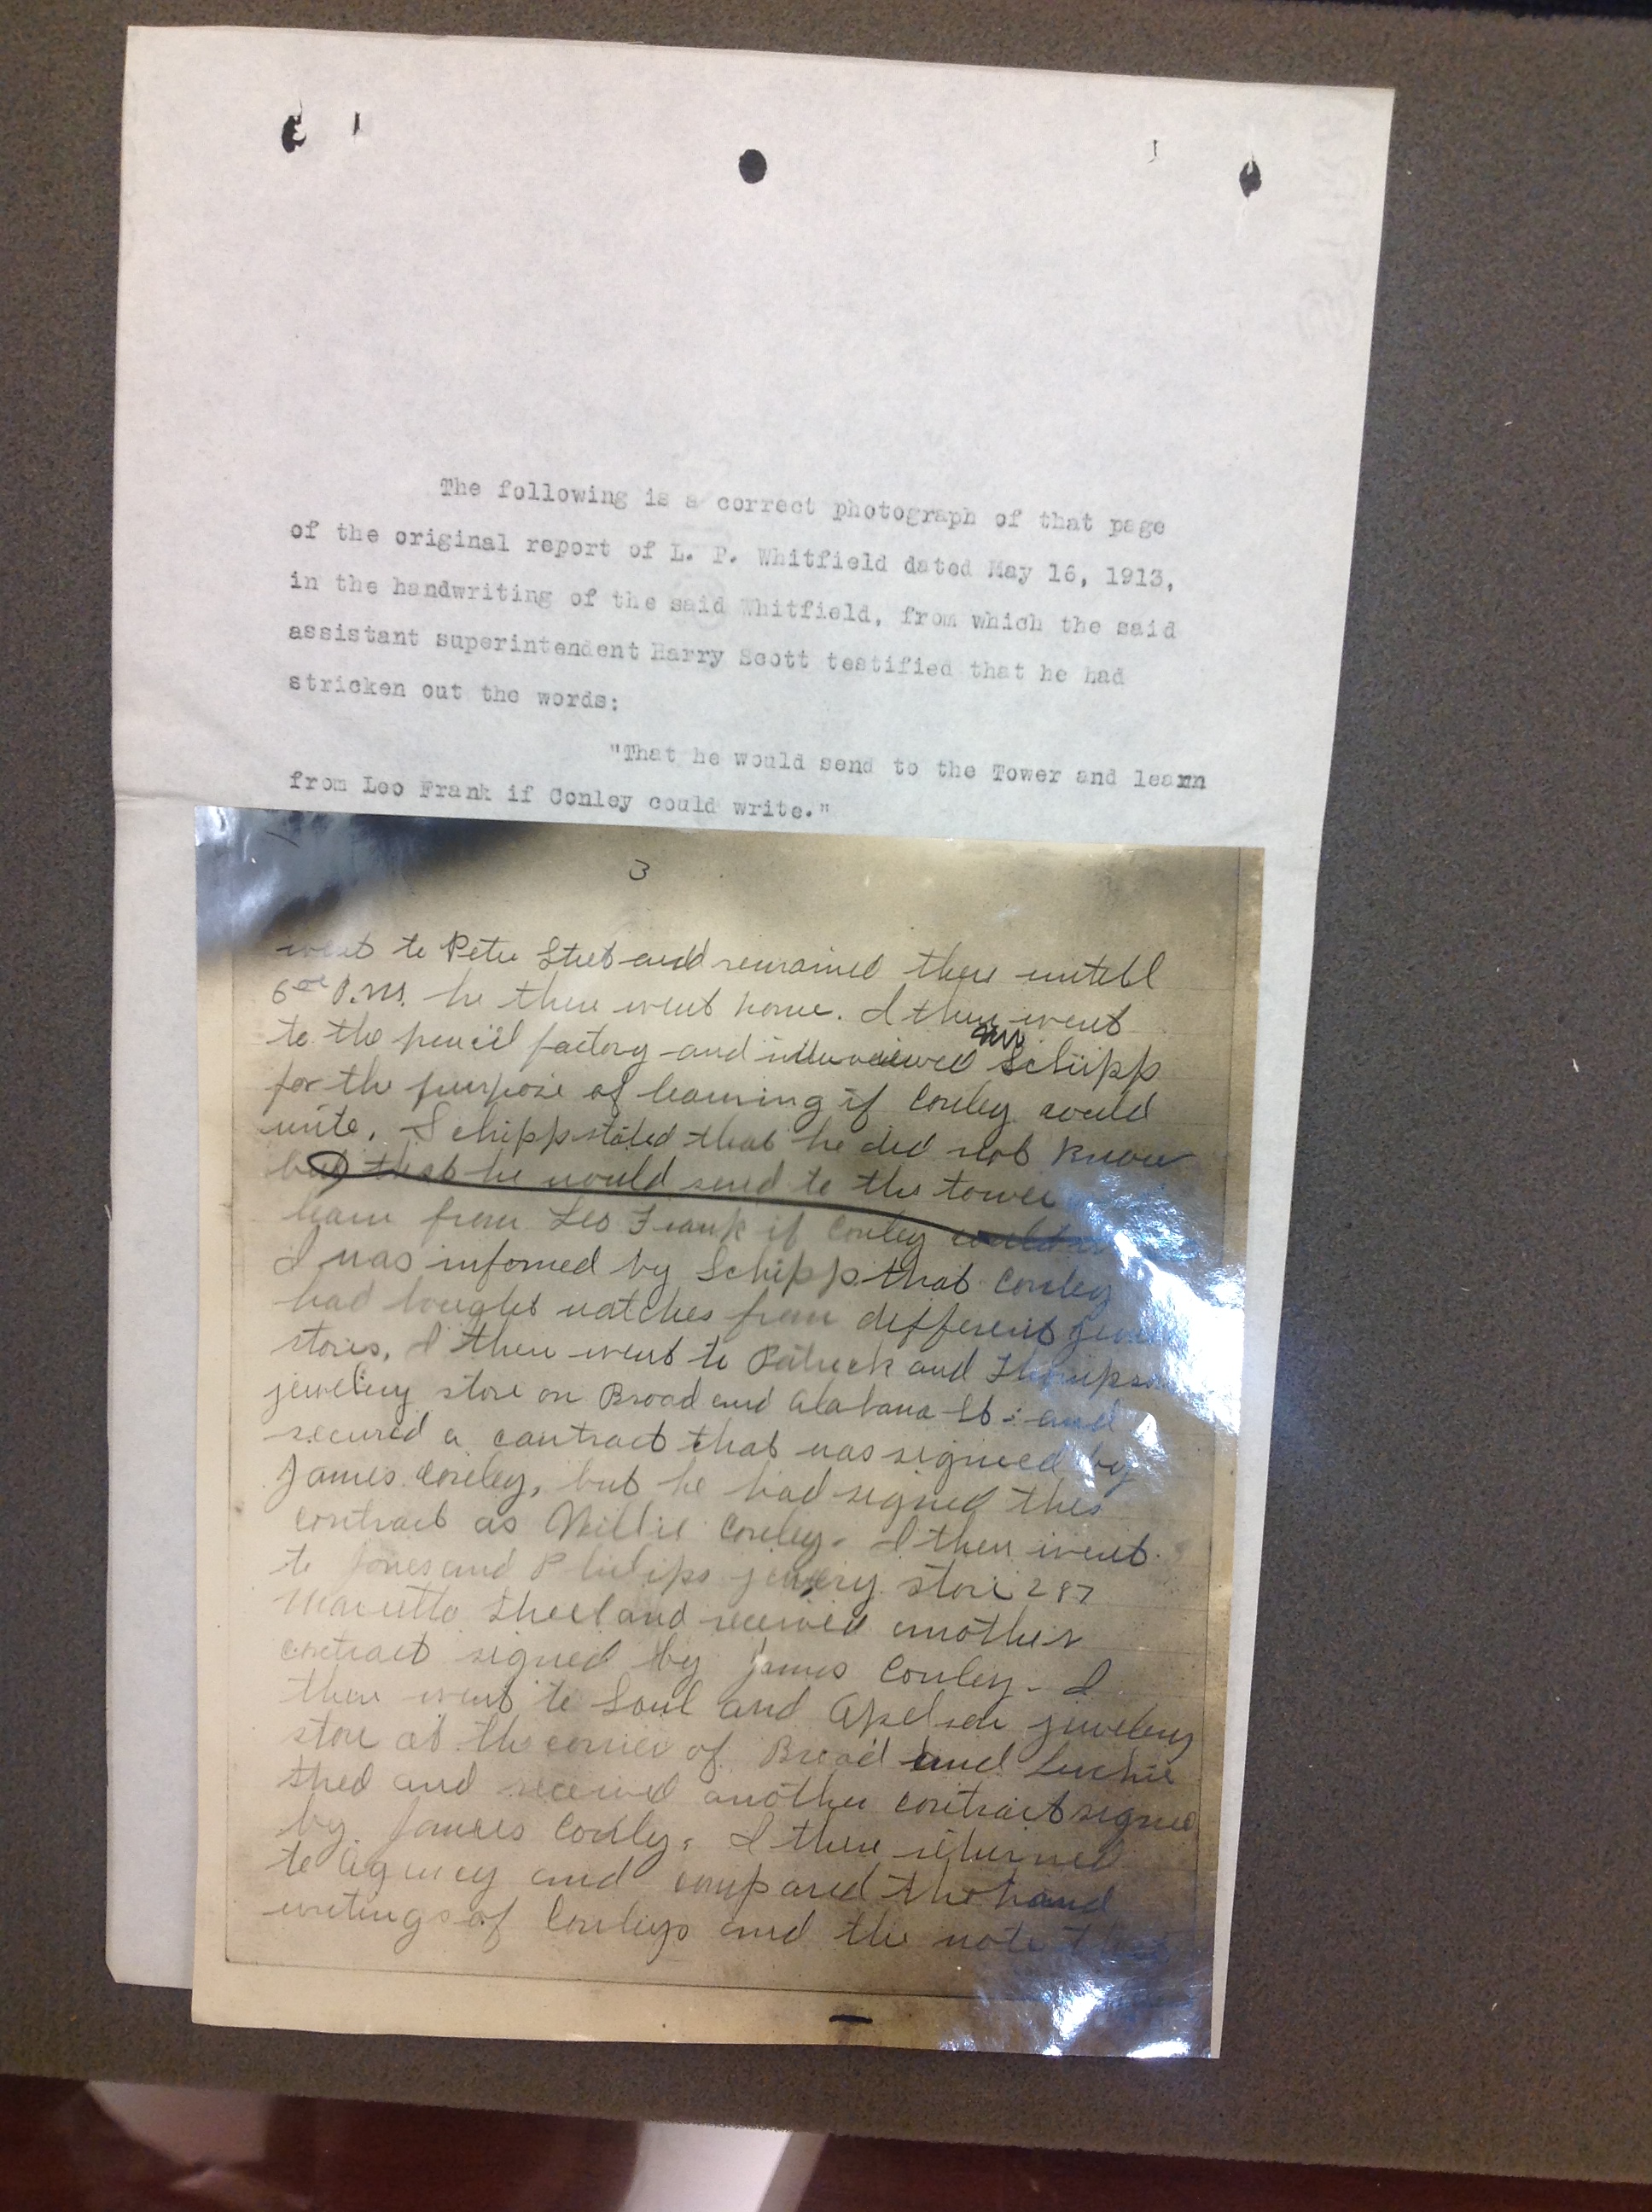 The following is a correct photograph of that page
of the original report of L. P. Whitfield dated May 16, 1913,
in the handwriting of the said Whitfield, from which the said
assistant superintendent Harry Scott testified that he had
stricken out the words:
"That he would send to the Tower and learn
from Leo Frank if Conley could write."
3
went to Peter Street and remained there untill
6 P.M. he then went home. I then went
to the pencil factory and interviewed Mr Schipp
for the purpose of learning if Conley could
write. Schipp stated that he did not know
but that he would send to the tower
learn from Leo Frank if Conley could
I was infomed by Schipp that Conley
had bought watches from different
stores, I then went to Patrick and Thompson
jewelery store on Broad and Alabama St. and
secured a contract that was signed by
James Conley, but he had signed this
contract as Willie Conley. I then went
to Jones and Philips store 287
Marietta Street and received another
contract signed by James Conley. I
then went to Saul and Apelson jewelery
store at the corner of Broad and Luckie
and received another contract signed
by James Conly. I then returned
to Agency and compared the hand
writings of Conleys and the note that